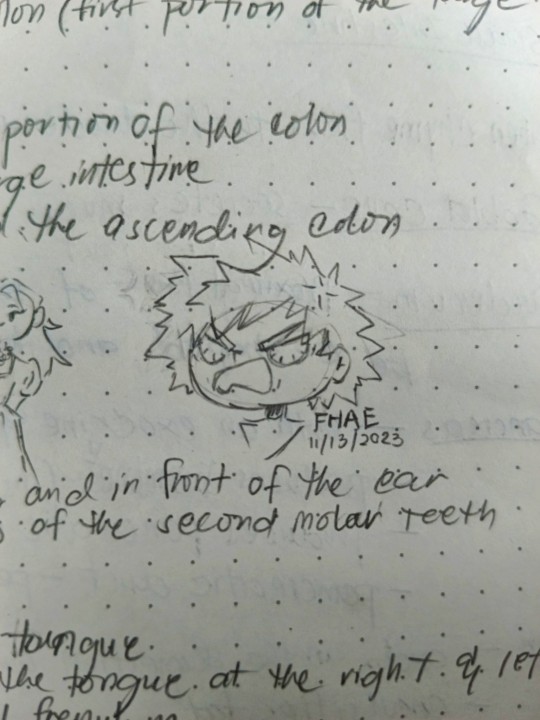 (first portion of the large
portion of the colon
intestine
the ascending colon
FHAE
11/13/2023
and in front of the ear
of the second molar teeth
tongue.
the tongue at the right &